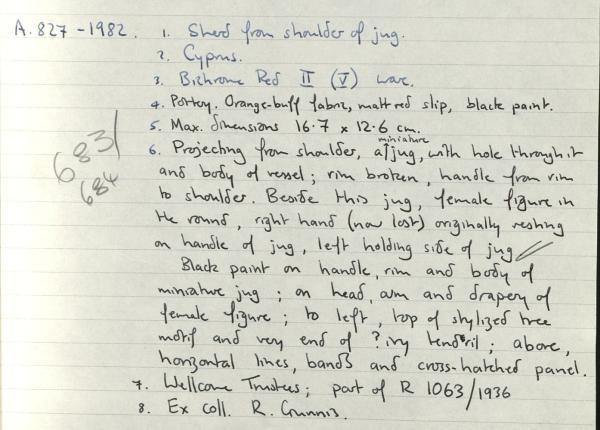 A. 827-1982. 1. Sherd from shoulder of jug.
2. Cyprus.
3. Bichrome Red II (V) ware.
4. Pottery. Orange-buff fabric, matt red slip, black paint.
5. Max. dimensions 16.7 x 12.6 cm.
6. Projecting from shoulder, a ↑miniature jug, with hole through it
and body of vessel; rim broken, handle from rim
to shoulder. Beside this jug, female figure in
the round, right hand (now lost) originally resting
on handle of jug, left holding side of jug
Black paint on handle, rim and body of
miniature jug; on head, arm and drapery of
female figure; to left, top of stylized tree
motif and very end of ?ivy tendril; above,
horizontal lines, bands and cross-hatched panel.
7. Wellcome Trustees; part of R 1063/1936
8. Ex coll. R. Gunnis.
683/
684